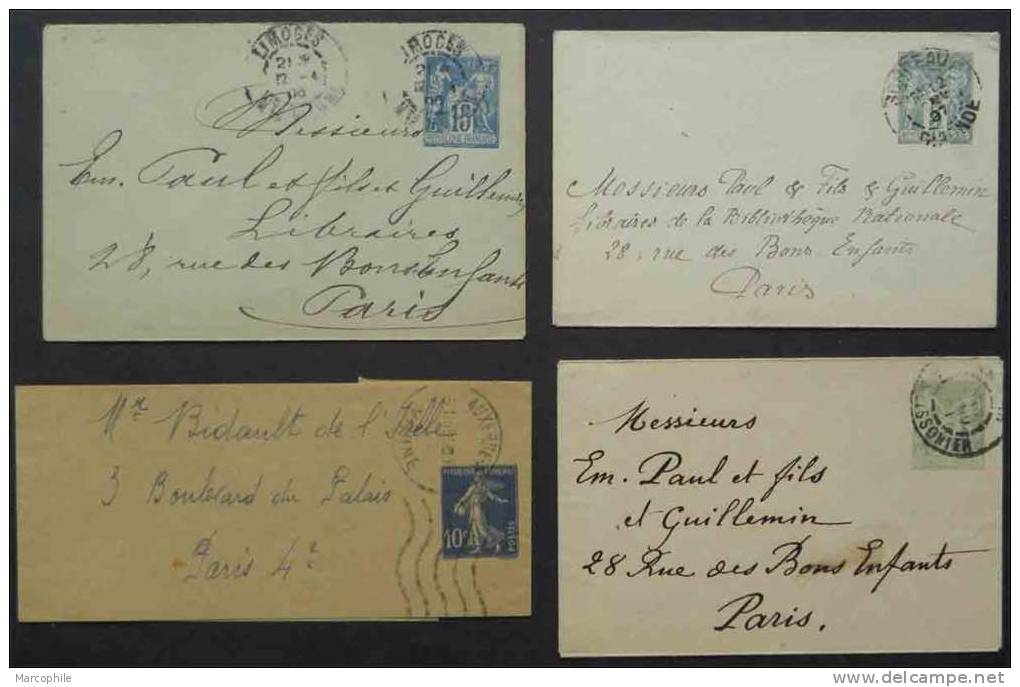 LIMOGES
LIMOGES
15
Messieurs
Em. Paul et fils et Guillemin
Libraires
28, rue des Bons Enfants
Paris
Messieurs Paul & Fils & Guillemin
Libraires de la Bibliothèque Nationale
28, rue des Bons-Enfants
Paris
Mr Bidault de l'Isle
3 Boulevard du Palais
Paris 4e
10c
POSTES
Messieurs
Em. Paul et fils
et Guillemin
28 Rue des Bons Enfants
Paris.
Marcophile
www.delcampe.net